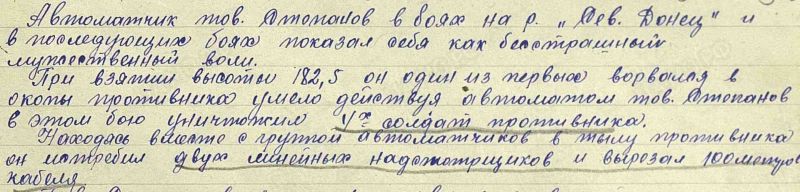 Автоматчик тов. Стопанов в боях на р. „Сев. Донец" и
в последующих боях показал себя как бесстрашный
мужественный воин.
При взятии высоты 182,5 он один из первых ворвался в
окопы противника умело действуя автоматом тов. Стопанов
в этом бою уничтожил 4х солдат противника.
Находясь вместе с группой автоматчиков в тылу противника
он истребил двух линейных надсмотрщиков и вырезал 100 метров
кабеля